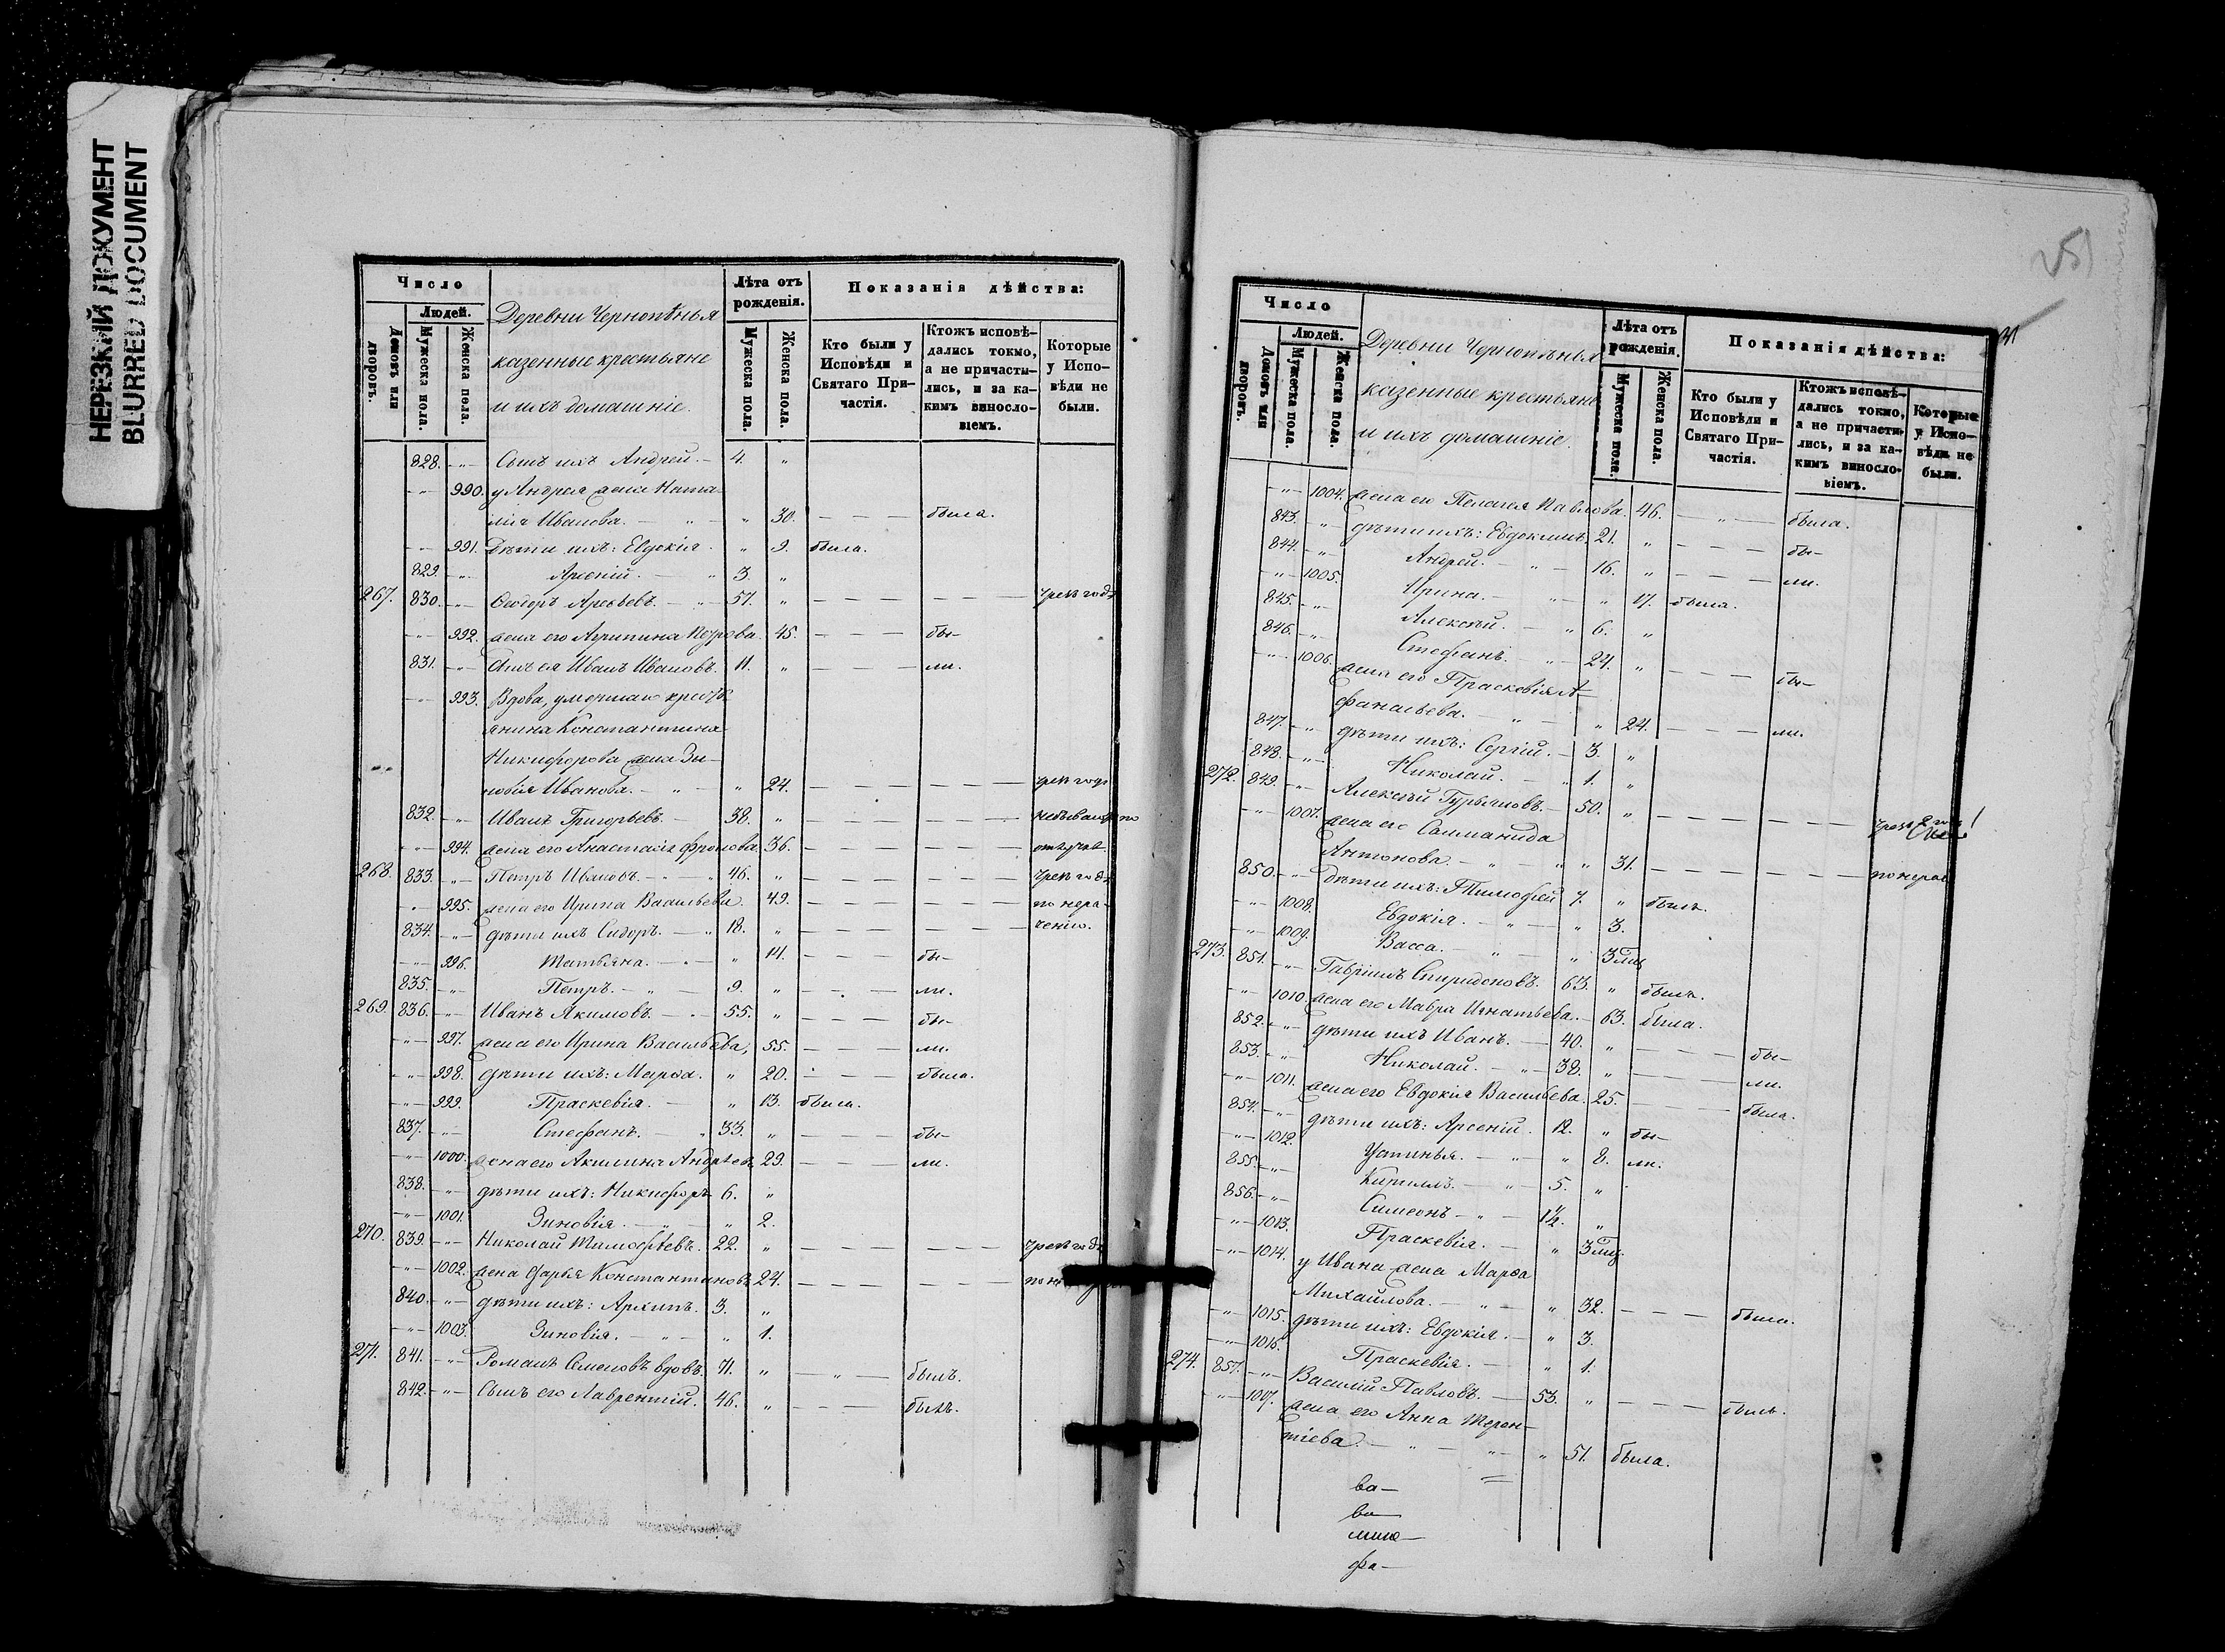 НЕРЕЗКИЙ ДОКУМЕНТ
BLURRED DOCUMENT
Число
Людей.
Домовъ или дворовъ.
Мужеска пола.
Женска пола.
Деревни Чернопѣнья
казенные крестьяне
и ихъ домашніе.
Лѣта отъ рожденія.
Мужеска пола.
Женска пола.
Показанія дѣйства:
Кто были у Исповѣди и Святаго Причастія.
Ктожъ исповѣ-
дались токмо,
а не причасти-
лись, и за ка-
кимъ виносло-
віемъ.
Которые
у Испо-
вѣди не
были.
828. -"- Сынъ ихъ Андрей. - 4. "
-"- 990. у Андрея жена Ната-
лія Иванова. - " - " 30. - - - была.
-"- 991. Дѣти ихъ: Евдокія. " 9. была.
829. -"- Арсеній. - " 3. "
267. 830. -"- Ѳеодоръ Арсѣевъ. - " 51. " - - - - - - чрезъ годъ
-"- 992. жена его Агрипина Петрова. 45. - - - бы-
831. -"- Сынъ ея Иванъ Ивановъ. 11. " - - - ли.
-"- 993. Вдова, умершаго кресть
янина Константина
Никифорова жена Зи-
новія Иванова. - " - " 24. - - - - - - чрезъ годъ
832. -"- Иванъ Григорьевъ. - 38. " - - - - - -
-"- 994. жена его Анастасія Фролова. 36. - - - - - -
268. 833. -"- Петръ Ивановъ. - " - 46. " - - - - - - чрезъ годъ
-"- 995. жена его Ирина Васильева. 49. - - - - - - по нера-
834. -"- дѣти ихъ Сидоръ. - " 18. " - - - - - - ченію.
-"- 996. Татьяна. - " - " 14. - - - бы-
835. -"- Петръ. - " - 9. " - - - ли.
269. 836. -"- Иванъ Акимовъ. - " - 55. " - - - бы-
-"- 997. жена его Ирина Васильева, 55. - - - ли.
-"- 998. дѣти ихъ: Марѳа. " 20. - - - была.
-"- 999. Праскевія. - " 13. была.
837. -"- Стефанъ. - " 33. " - - - бы-
-"- 1000. жена его Акилина Андрѣев 29. - - - ли.
838. -"- дѣти ихъ: Никифоръ 6. "
-"- 1001. Зиновія. - " - " 2.
270. 839. -"- Николай Тимоѳѣевъ. 22. " - - - - - - чрезъ годъ
-"- 1002. жена Дарья Константинов 24. - - - - - -
840. -"- дѣти ихъ: Архипъ. 3. "
-"- 1003. Зиновія. - " - " 1.
271. 841. -"- Романъ Семеновъ вдовъ. 71. " - " - былъ.
842. -"- Сынъ его Лаврентій. 46. " - - - былъ.
251
Число
Людей.
Домовъ или дворовъ.
Мужеска пола.
Женска пола.
Деревни Чернопѣнья
казенные крестьяне
и ихъ домашніе.
Лѣта отъ рожденія.
Мужеска пола.
Женска пола.
Показанія дѣйства:
Кто были у Исповѣди и Святаго Причастія.
Ктожъ исповѣ-
дались токмо,
а не причасти-
лись, и за ка-
кимъ виносло-
віемъ.
Которые
у Испо-
вѣди не
были.
-"- 1004. жена его Пелагея Павлова. 46. - " - была.
843. -"- дѣти ихъ: Евдокимъ. 21. " - - - бы-
844. -"- Андрей. - " - 16. " - - - ли.
-"- 1005. Ирина. - " - " 17. была.
845. -"- Алексѣй. - " 6. "
846. -"- Стефанъ. - " - 24. " - - - бы-
-"- 1006. жена его Праскевія А-
фанасьева. - " - " 24. - - - ли.
847. -"- дѣти ихъ: Сергій. - 3. "
848. -"- Николай. - " 1. "
272. 849. -"- Алексѣй Гурьяновъ. - 50. " - - - - - -
-"- 1007. жена его Саломанида
Антонова. - " - " " 31. - - - - - - по нерач
850. -"- Дѣти ихъ: Тимофей 7. " былъ.
-"- 1008. Евдокія. - " - " 3.
-"- 1009. Васса. - " - " 3 мѣс
273. 851. -"- Гавріилъ Спиридоновъ. 63. " былъ.
-"- 1010. жена его Мавра Игнатьева. - 63. была.
852. -"- дѣти ихъ Иванъ. - 40. " - - - бы-
853. -"- Николай. - " - 38. " - - - ли.
-"- 1011. жена его Евдокія Васильева. 25. - - - была.
854. -"- дѣти ихъ: Арсеній. 12. " бы-
-"- 1012. Устинья. - " - " 8. ли.
855. -"- Кириллъ. - " - 5. "
856. -"- Симеонъ - " - 1½. "
-"- 1013. Праскевія. - " 3 мѣс.
-"- 1014. у Ивана жена Марѳа
Михайлова. - " - " 32. - - - была.
-"- 1015. дѣти ихъ: Евдокія. - " 3.
-"- 1016. Праскевія. - " 1.
274. 857. -"- Василій Павловъ. - 53. " - - - былъ.
-"- 1017. жена его Анна Терен-
тіева. - " - " - " 51. была.
ва-
ва-
фа-